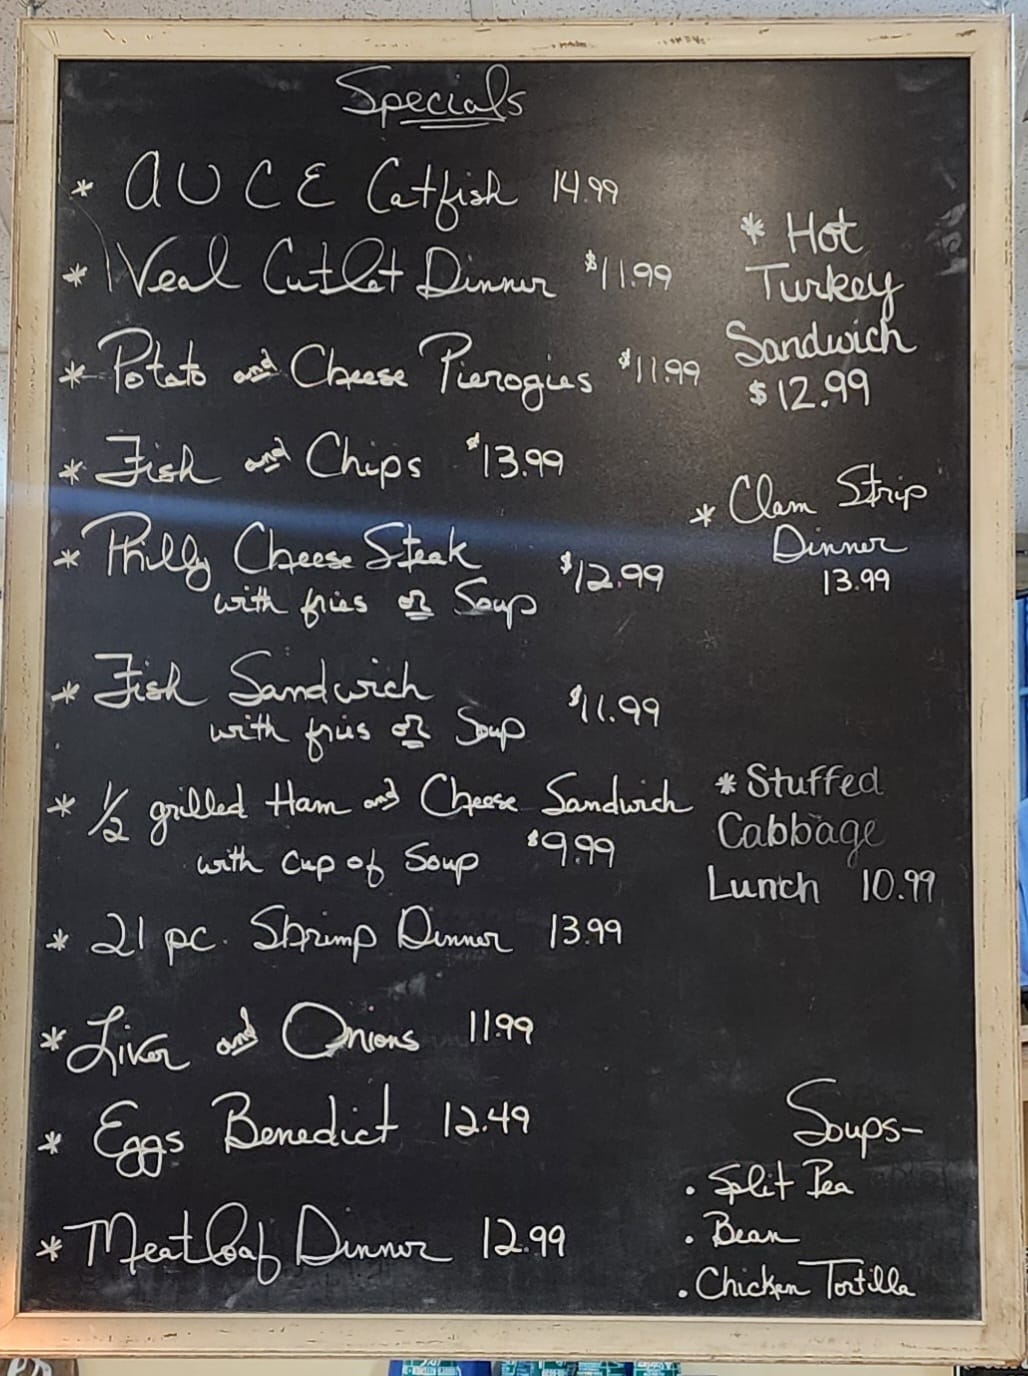 Specials
* AUCE Catfish 14.99
* Veal Cutlet Dinner $11.99
* Potato and Cheese Pierogies $11.99
* Fish and Chips $13.99
* Philly Cheese Steak $12.99
with fries or Soup
* Fish Sandwich $11.99
with fries or Soup
* 1/2 grilled Ham and Cheese Sandwich
with cup of Soup $9.99
* 21 pc. Shrimp Dinner 13.99
* Liver and Onions 11.99
* Eggs Benedict 12.49
* Meatloaf Dinner 12.99
* Hot
Turkey
Sandwich
$12.99
* Clam Strip
Dinner
13.99
* Stuffed
Cabbage
Lunch 10.99
Soups-
• Split Pea
• Bean
• Chicken Tortilla